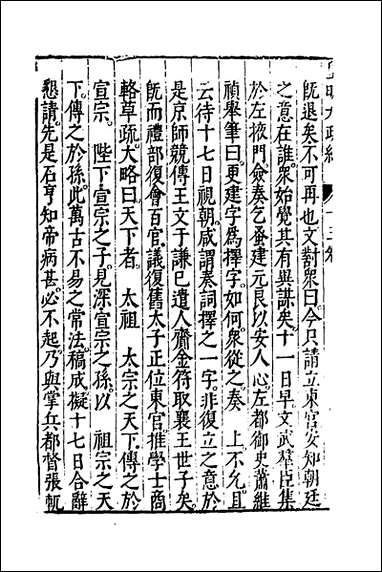 既退矣不可再也文對衆曰今只請立東宮安知朝廷
之意在誰衆始覺其有異謀矣十一日早文武羣臣集
於左掖門僉奏乞蚤建元良以安人心左都御史蕭維
禎舉筆曰更建字爲擇字如何衆從之奏　上不允且
云待十七日視朝咸謂奏詞擇之一字非復立之意於
是京師競傳王文于謙已遣人齎金符取襄王世子矣
旣而禮部復會百官議復舊太子正位東宮推學士商
輅草疏大略曰天下者　太祖　太宗之天下傳之於
宣宗　陛下宣宗之子見深宣宗之孫以　祖宗之天
下傳之於孫此萬古不易之常法稿成擬十七日合辭
懇請先是石亨知帝病甚必不起乃與掌兵都督張軏